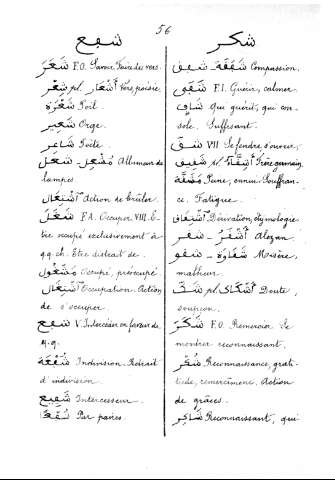 56
شفع
شَعَرَ F.O. Savoir, faire des vers.
شِعْر pl. أَشْعَار Vers, poésie.
شَعْرَة Poil.
شَعِير Orge.
شَاعِر Poète.
مُشْعِل - شعل Allumeur de
lampes.
اشْتِعَال Action de brûler.
شَغَلَ F.A. Occuper. VIII. E-
tre occupé exclusivement à
q.q. ch. Etre distrait de.
مَشْغُول Occupé, préoccupé.
اشْتِغَال Occupation. Action
de s'occuper.
شفع V. Intercéder en faveur de
q.q.
شُفْعَة Indivision. Retrait
d'indivision.
شَفِيع Intercesseur.
Par paires.
شكر
شَفَقَة - شفق Compassion.
شَفَى F.I. Guérir, calmer.
شَافٍ Qui guérit, qui con-
sole. Suffisant.
شق VII Se fendre, s'ouvrir.
شَقِيق pl. أَشِقَّاء Frère germain.
مَشَقَّة Peine, ennui. Souffran-
ce. Fatigue.
اشْتِقَاق Dérivation, étymologie.
أَشْقَر - شقر Alezan.
شَقَاوَة - شقو Misère,
malheur.
شَكّ pl. شُكُوك Doute,
soupçon.
شَكَرَ F.O. Remercier. Se
montrer reconnaissant.
شُكْر Reconnaissance, grati-
tude, remercîment. Action
de grâces.
شَاكِر Reconnaissant, qui